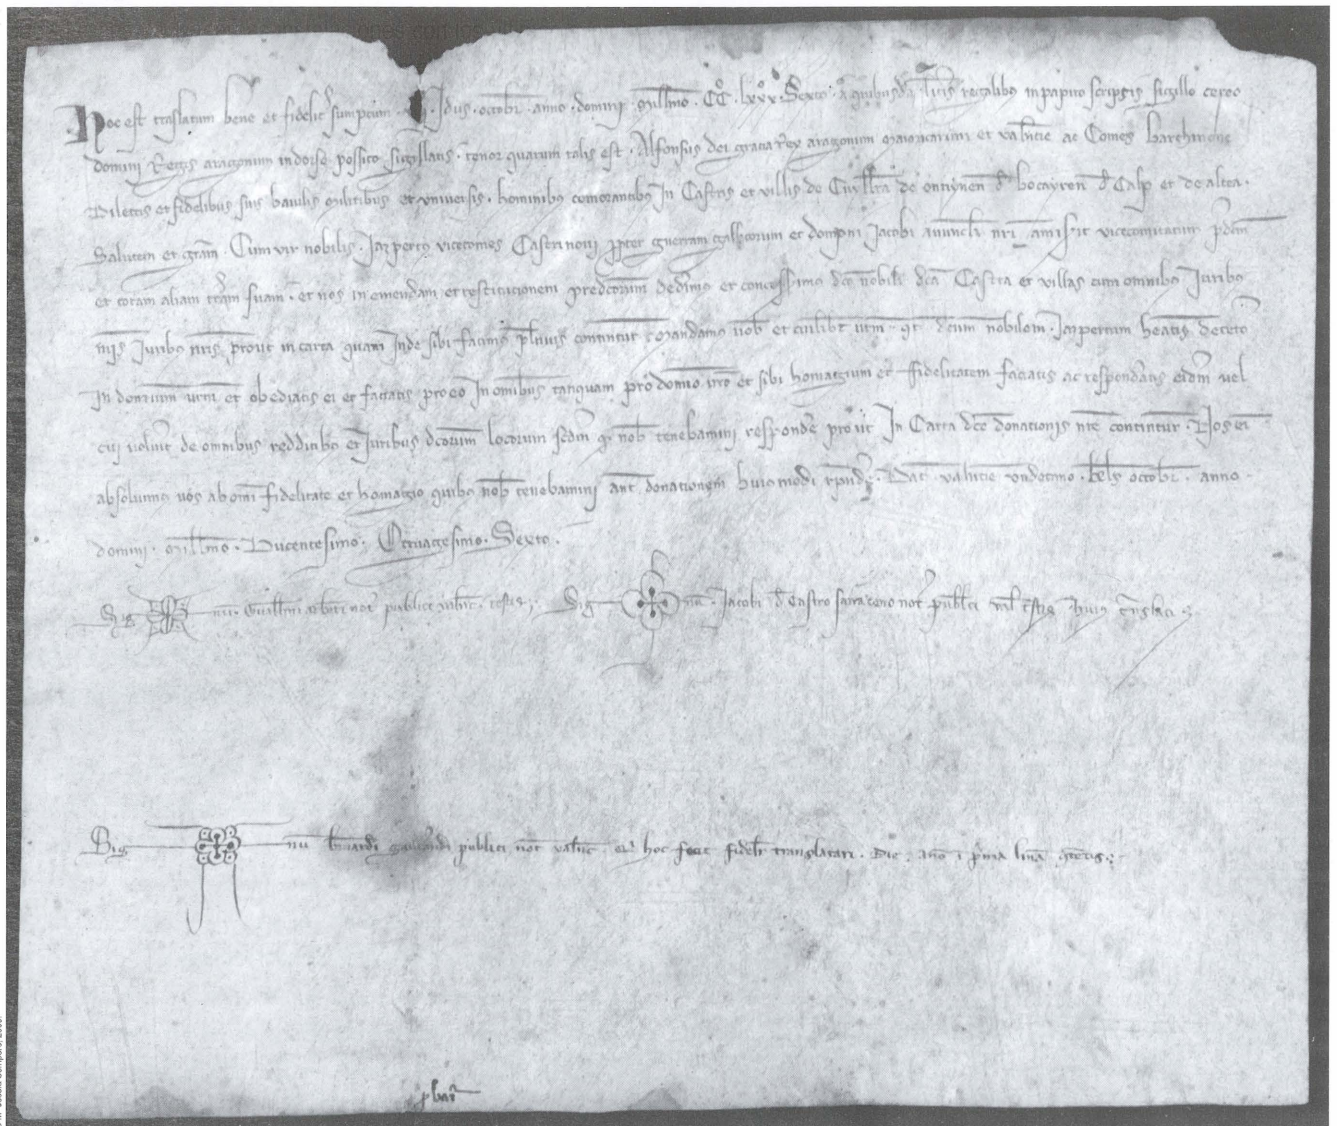 Hoc est traslatum bene et fidelit sumptum Idus octobr anno domini millmo CC lxxx Sexto a quibusda lris regalibo in papiro scriptis sigillo cereo
domini Regis aragonum in dorso possito sigillatis tenor quarum talis est Alfonsus dei gracia rex aragonum maioricarum et valncie ac Comes barchinone
Dilectis et fidelibus suis baiulis militibus et universis hominibo comorantibo In Castris et villis de de ontinyen d bocayren d Calp et de altea
Salutem et gram Cum vir nobilis Jazpertus vicecomes Castri novi ppter guerram gallicorum et dompni Jacobi avunculi nri amiserit vicecomitatum pdcm
et totam aliam tram suam et nos in emendam et restitucionem predcorum dedimo et concessimo dco nobili dca Castra et villas cum omnibo Juribo
Juribo nris prout in carta quam Inde sibi facimo plenius continetur mandamo vob et cuilibt vrm qt dcum nobilem Jazpertum heatis decetero
In domium vrm et obediatis ei et faciatis pro eo In omibus tanquam pro domio vro et sibi homatgium et ffidelitatem faciatis ac respondatis eidm vel
cui voluit de omnibus reddibo et Juribus dcorum locorum sedm q nob tenebamini responde prout In Carta dce donationis nre continetur Nos ei
absolvimo vos ab omi fidelitate et homatgio quibo nob tenebamini ant donationem huiomodi Dat valncie undecimo kls octobr anno
domini millmo Ducentesimo Octuagesimo Sexto
Sig num Guillmi not publici testis Sig num Jacobi d Castro sarraceno not publici val testis huius translati
Sig num bnardi publici not valnc q hoc fecit fidelr translatari Die anno i prima linea contetis